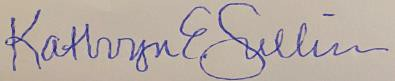 Kathryn E. Sullivan